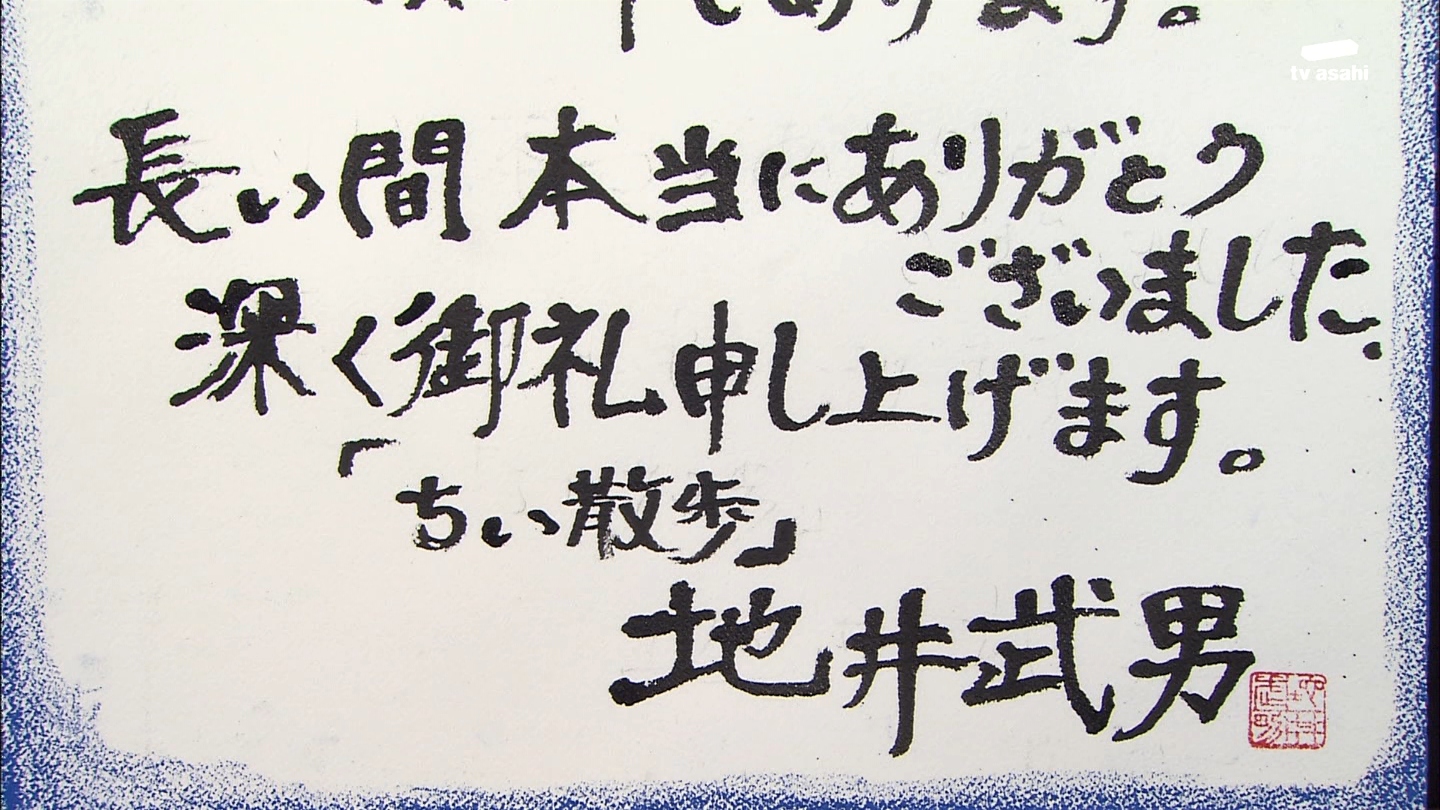 であります。
tv asahi
長い間本当にありがとう
ございました.
深く御礼申し上げます。
「ちい散歩」
地井武男